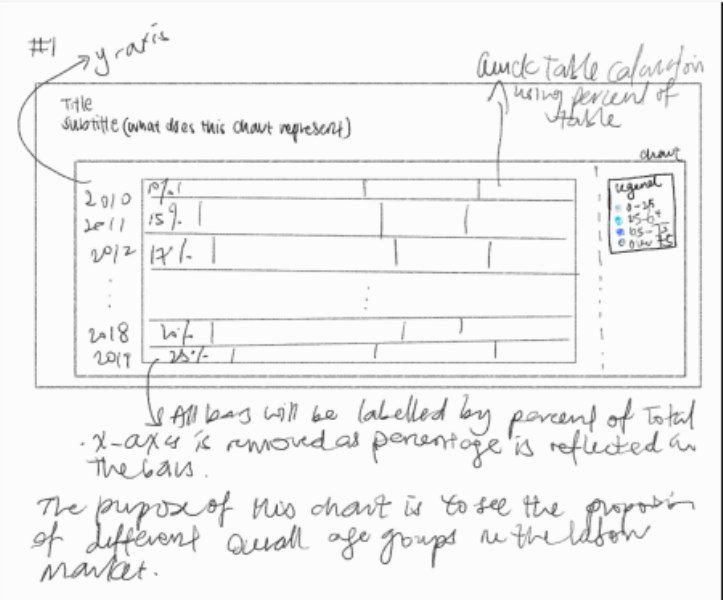 #1
y-axis
Quick Table calculation
using percent of
table
Title
Subtitle (what does this chart represent)
chart
legend
0-25
25-64
65-75
Over 75
2010 10%
2011 15%
2012 17%
2018 20%
2019 25%
All bars will be labelled by percent of Total
. x-axis is removed as percentage is reflected in
the bars.
The purpose of this chart is to see the proportion
of different overall age groups in the labor
market.